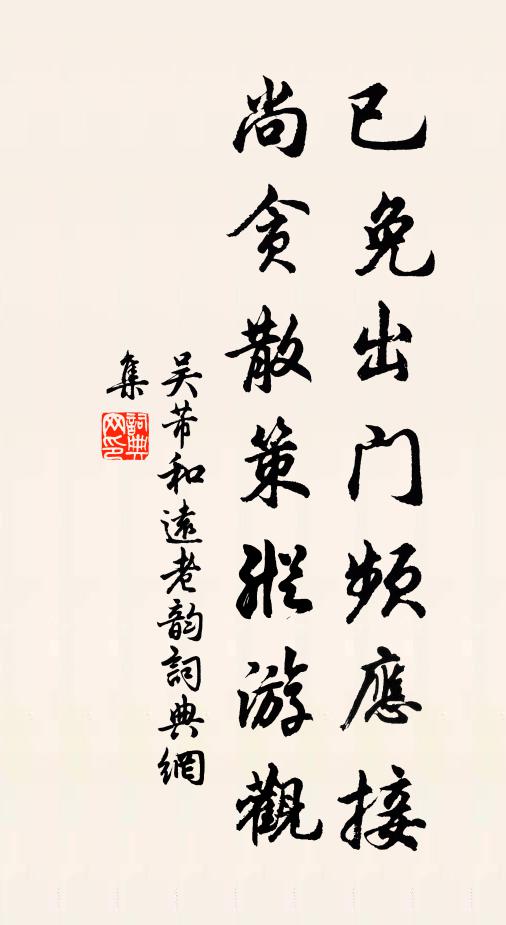 已免出门頻應接
尚貪散策縱游觀
吴芾和遠老韵詞典網
集
詞典網印